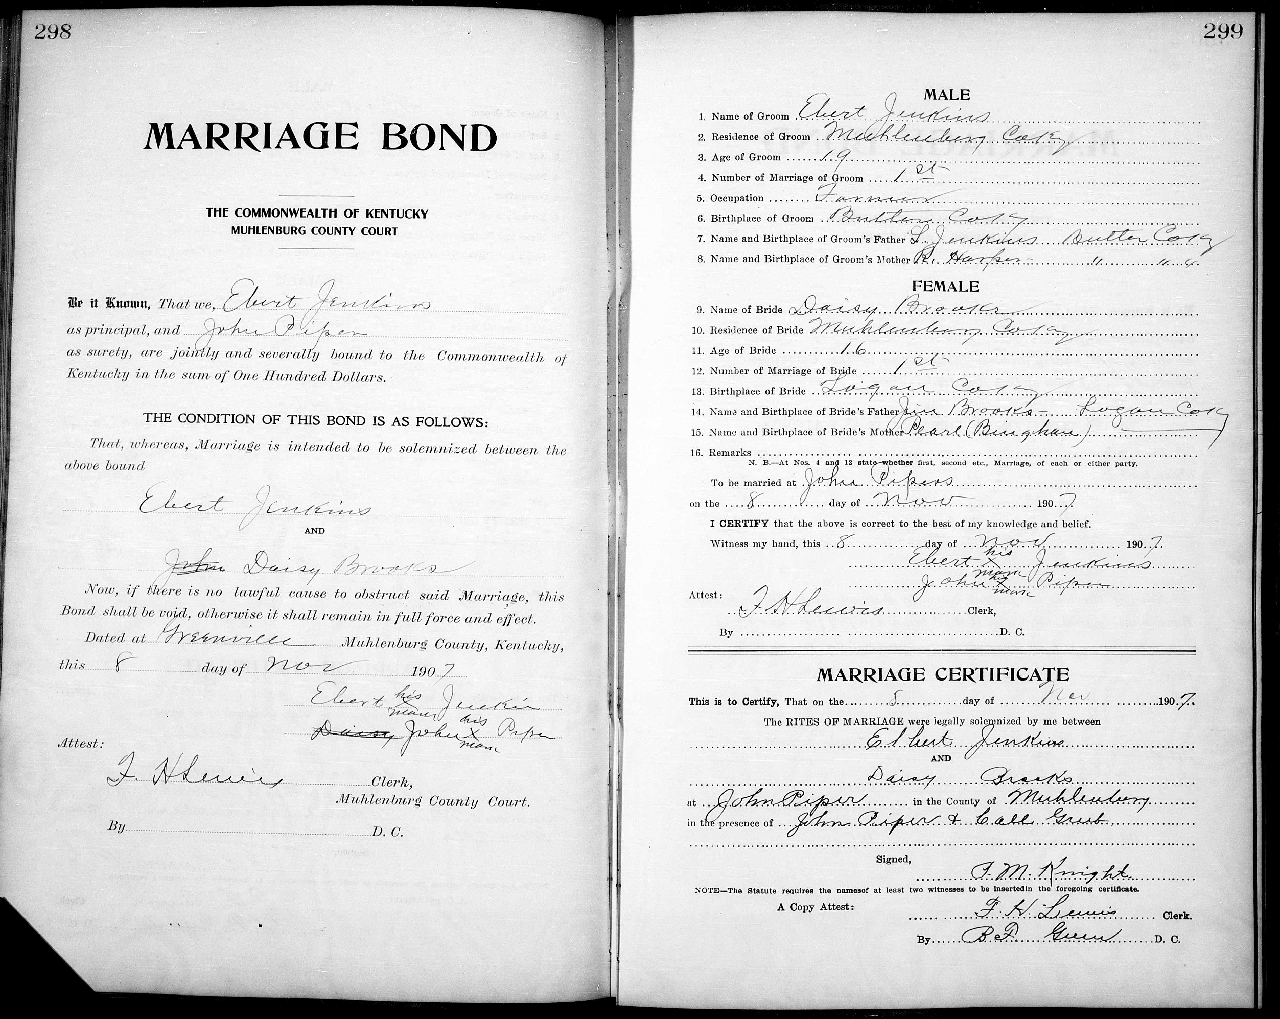 298
MARRIAGE BOND
THE COMMONWEALTH OF KENTUCKY
MUHLENBURG COUNTY COURT
Be it Known, That we, Ebert Jenkins
as principal, and John Piper
as surety, are jointly and severally bound to the Commonwealth of
Kentucky in the sum of One Hundred Dollars.
THE CONDITION OF THIS BOND IS AS FOLLOWS:
That, whereas, Marriage is intended to be solemnized between the
above bound
Ebert Jenkins
AND
John Daisy Brooks
Now, if there is no lawful cause to obstruct said Marriage, this
Bond shall be void, otherwise it shall remain in full force and effect.
Dated at Greenville Muhlenburg County, Kentucky,
this 8 day of Nov 1907
Ebert his x mark Jenkins
Daisy John his x mark Piper
Attest:
F. H Lewis Clerk,
Muhlenburg County Court.
By D. C.
299
MALE
1. Name of Groom Ebert Jenkins
2. Residence of Groom Muhlenburg Co Ky
3. Age of Groom 19
4. Number of Marriage of Groom 1st
5. Occupation Farmer
6. Birthplace of Groom Butler Co Ky
7. Name and Birthplace of Groom's Father L. Jenkins Butler Co Ky
8. Name and Birthplace of Groom's Mother R. Harper " " "
FEMALE
9. Name of Bride Daisy Brooks
10. Residence of Bride Muhlenburg Co Ky
11. Age of Bride 16
12. Number of Marriage of Bride 1st
13. Birthplace of Bride Logan Co Ky
14. Name and Birthplace of Bride's Father Jim Brooks Logan Co Ky
15. Name and Birthplace of Bride's Mother Pearl (Bingham)
16. Remarks
N. B.—At Nos. 4 and 12 state whether first, second etc., Marriage, of each or either party.
To be married at John Pipers
on the 8 day of Nov 1907
I CERTIFY that the above is correct to the best of my knowledge and belief.
Witness my hand, this 8 day of Nov 1907.
Ebert his x mark Jenkins
John his x mark Piper
Attest:
F H Lewis Clerk,
By D. C.
MARRIAGE CERTIFICATE
This is to Certify, That on the 8 day of Nov 1907.
The RITES OF MARRIAGE were legally solemnized by me between
Elbert Jenkins
AND
Daisy Brooks
at John Piper in the County of Muhlenburg
in the presence of John Piper & Call Grub
Signed,
F. M. Knight
NOTE—The Statute requires the namesof at least two witnesses to be insertedin the foregoing certificate.
A Copy Attest: F. H. Lewis Clerk.
By B. F. Green D. C.